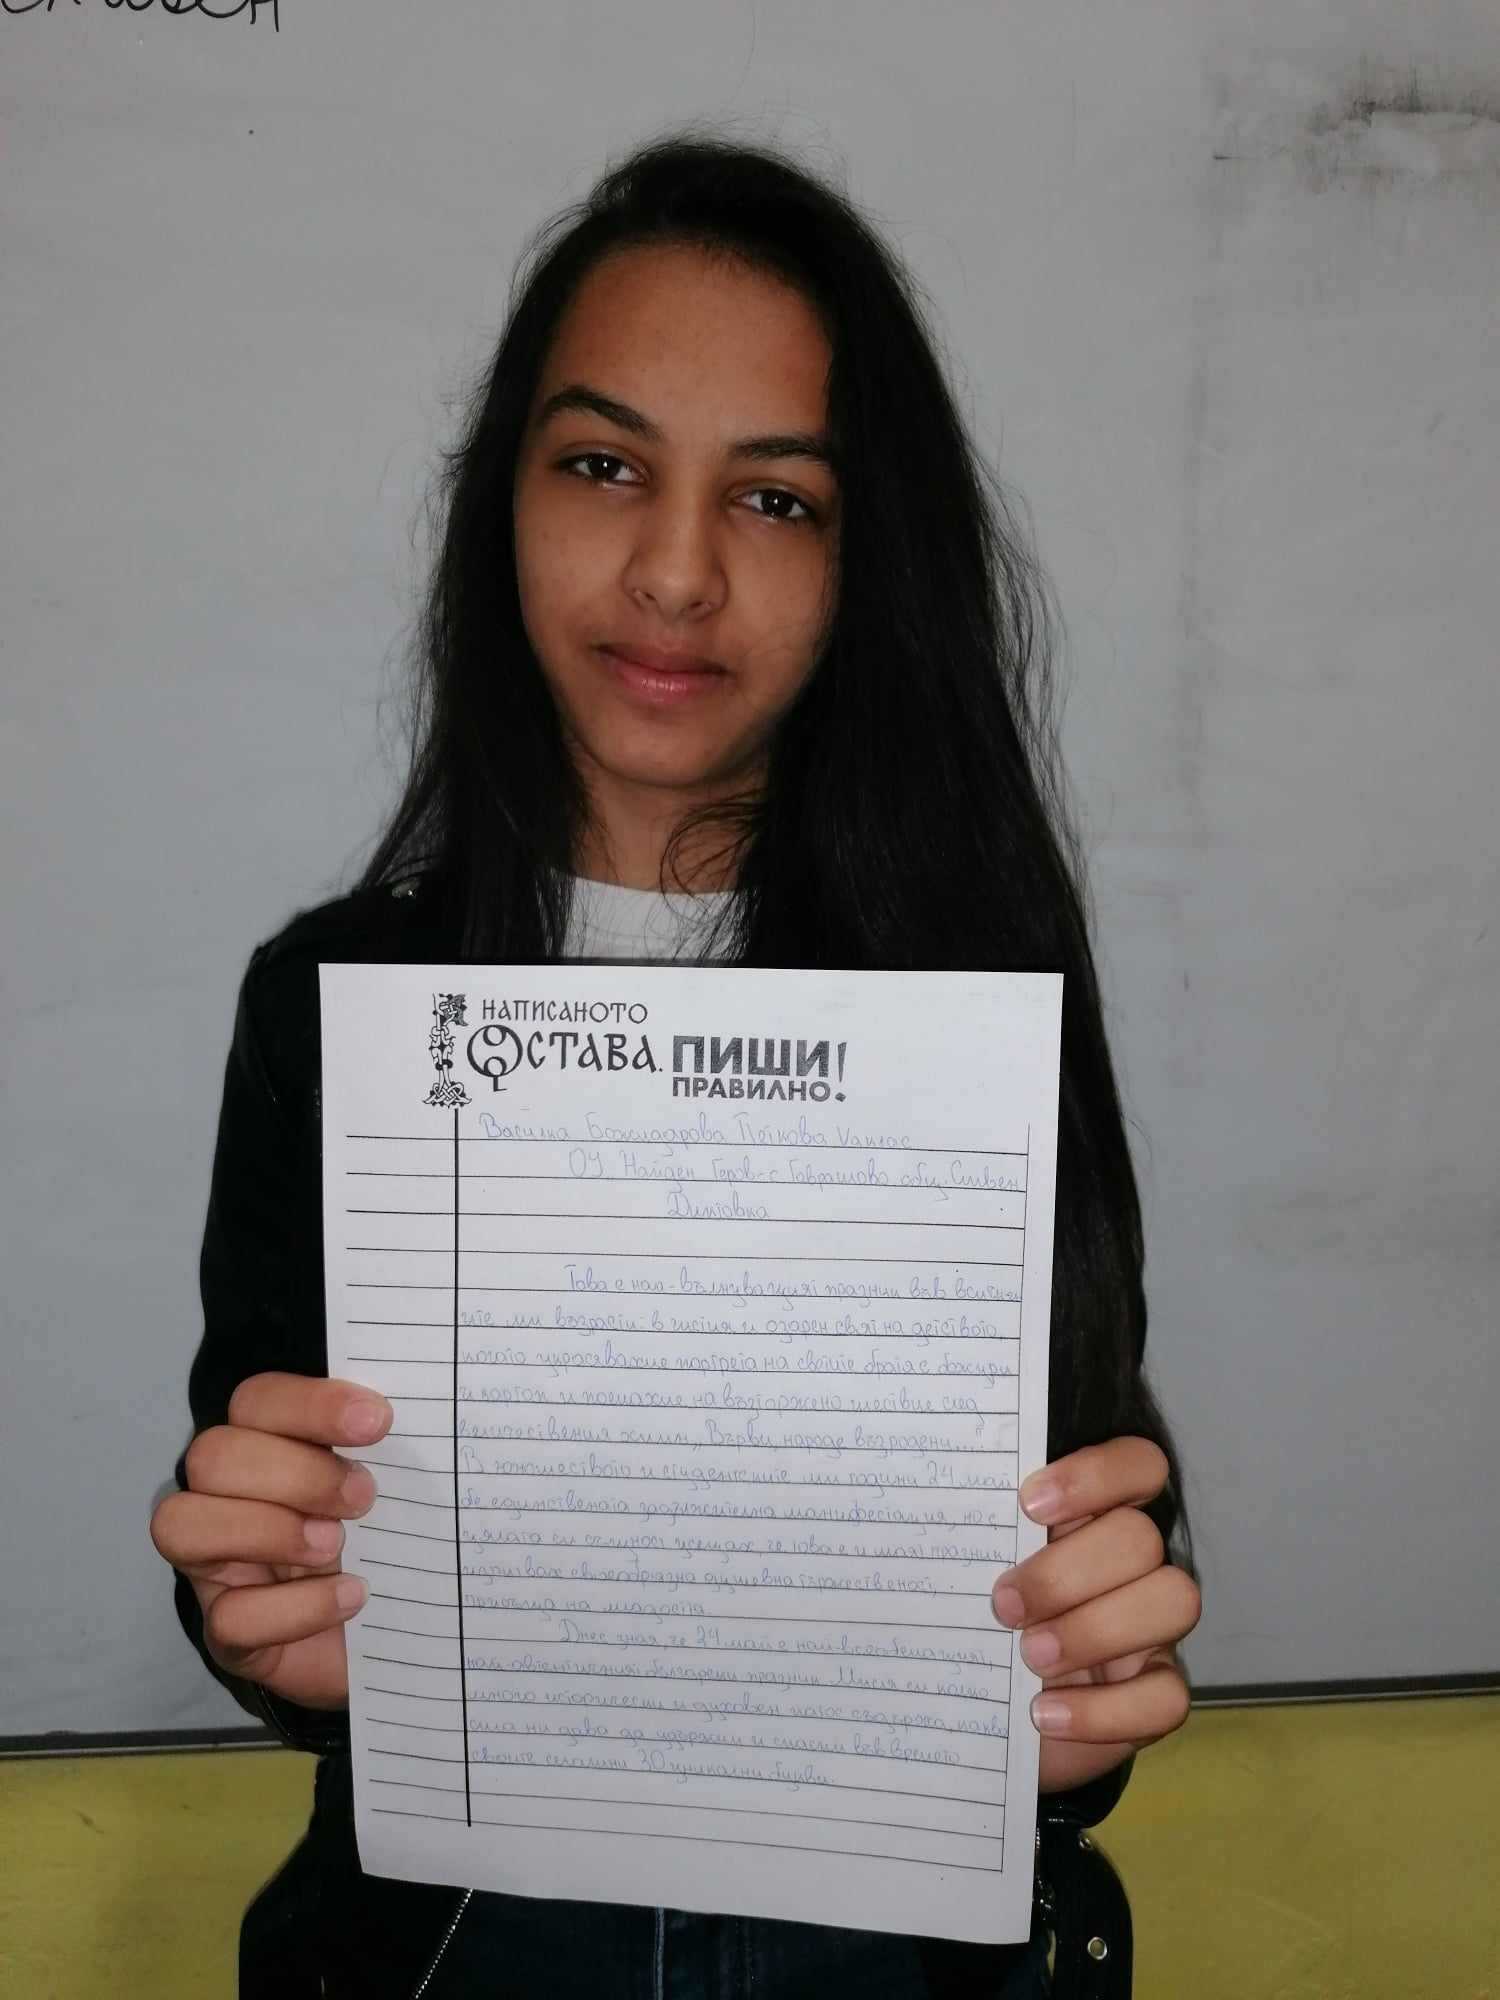 НАПИСАНОТО
ОСТАВА. ПИШИ
ПРАВИЛНО!
Василка Божидарова Пейкова V клас
ОУ „Найден Геров"-с Гавраилово общ. Сливен
Диктовка
Това е най-вълнуващият празник във всички
те ми възрасти: в чистия и озарен свят на детството,
когато украсявахме портрета на светите братя с божури
и картон и поемахме на възторжено шествие след
величествения химн „Върви, народе възродени...".
В юношеството и студентските ми години 24 май
бе единствената задължителна манифестация, но с
цялата си същност усещах, че това е и моят празник,
изпитвах своеобразна душевна тържественост,
присъща на младостта.
Днес зная, че 24 май е най-всеобемащият,
най-автентичният български празник. Мисля си колко
много исторически и духовен патос съдържа, каква
сила ни дава да издържим и спасим във времето
своите сегашни 30 уникални букви.